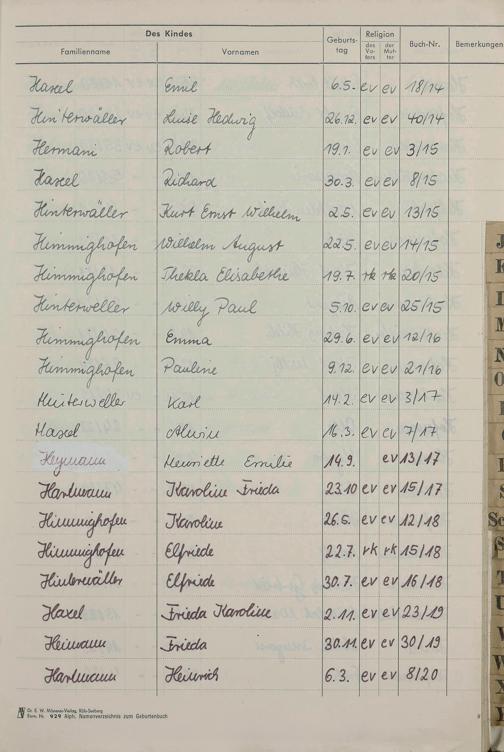 Des Kindes Geburts-tag Religion Buch-Nr. Bemerkungen
Familienname Vornamen des Va-ters der Mut-ter
Haxel Emil 6.5. ev ev 18/14
Hinterwäller Luise Hedwig 26.12. ev ev 40/14
Hermani Robert 19.1. ev ev 3/15
Haxel Richard 30.3. ev ev 8/15
Hinterwäller Kurt Ernst Wilhelm 2.5. ev ev 13/15
Himmighofen Wilhelm August 22.5. ev ev 14/15
Himmighofen Thekla Elisabethe 19.7. rk rk 20/15
Hinterweller Willy Paul 5.10. ev ev 25/15
Himmighofen Emma 29.6. ev ev 12/16
Himmighofen Pauline 9.12. ev ev 21/16
Hinterweller Karl 14.2. ev ev 3/17
Haxel Alwin 16.3. ev ev 7/17
Heymann Henriette Emilie 14.9. ev 13/17
Hartmann Karoline Frieda 23.10 ev ev 15/17
Himmighofen Karoline 26.6. ev ev 12/18
Himmighofen Elfriede 22.7. rk rk 15/18
Hinterwäller Elfriede 30.7. ev ev 16/18
Haxel Frieda Karoline 2.11. ev ev 23/19
Heimann Frieda 30.11. ev ev 30/19
Hartmann Heinrich 6.3. ev ev 8/20
Best. Nr. 929 Alph. Namenverzeichnis zum Geburtenbuch